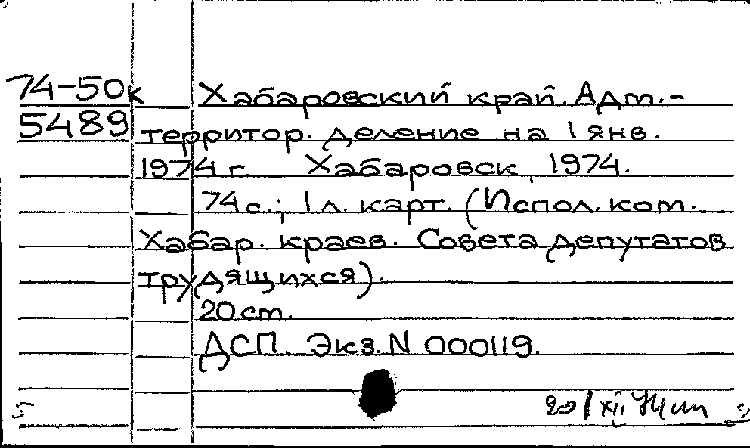 74-50к Хабаровский край. Адм.-
5489 территор. деление на 1 янв.
1974 г. Хабаровск, 1974.
74 с.; 1 л. карт. (Испол. ком.
Хабар. краев. Совета депутатов
трудящихся).
20 см.
ДСП. Экз. N 000119.
5 20/XII 74